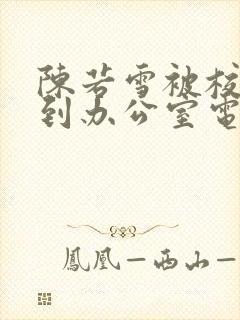 陳若雪被校
到办公室電
鳳凰—西山—